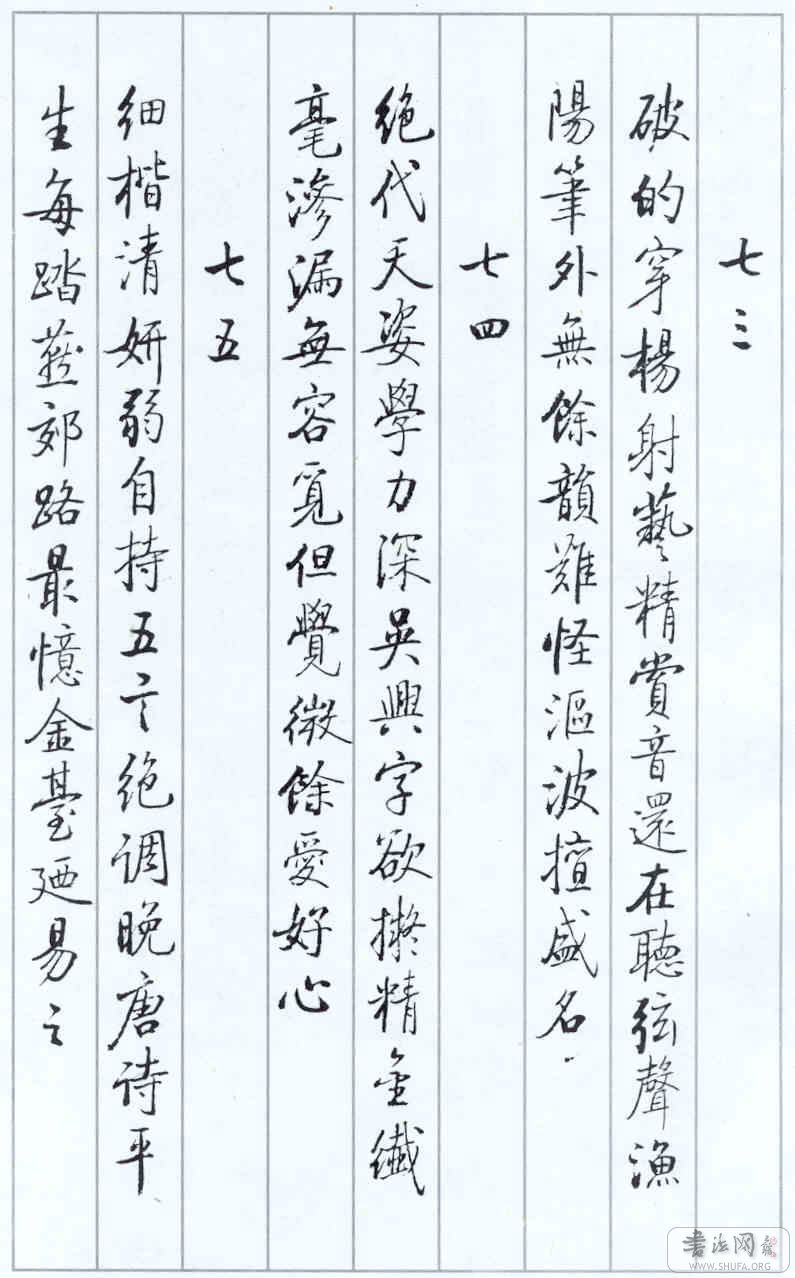 七三
破的穿楊射藝精賞音還在聽弦聲漁
陽筆外無餘韻難怪漚波擅盛名
七四
絕代天姿學力深吳興字欲擬精金纖
毫滲漏無容覓但覺微餘愛好心
七五
细楷清妍弱自持五言绝调晚唐诗平
生每踏燕郊路最憶金臺廼易之
書法网
WWW.SHUFA.ORG